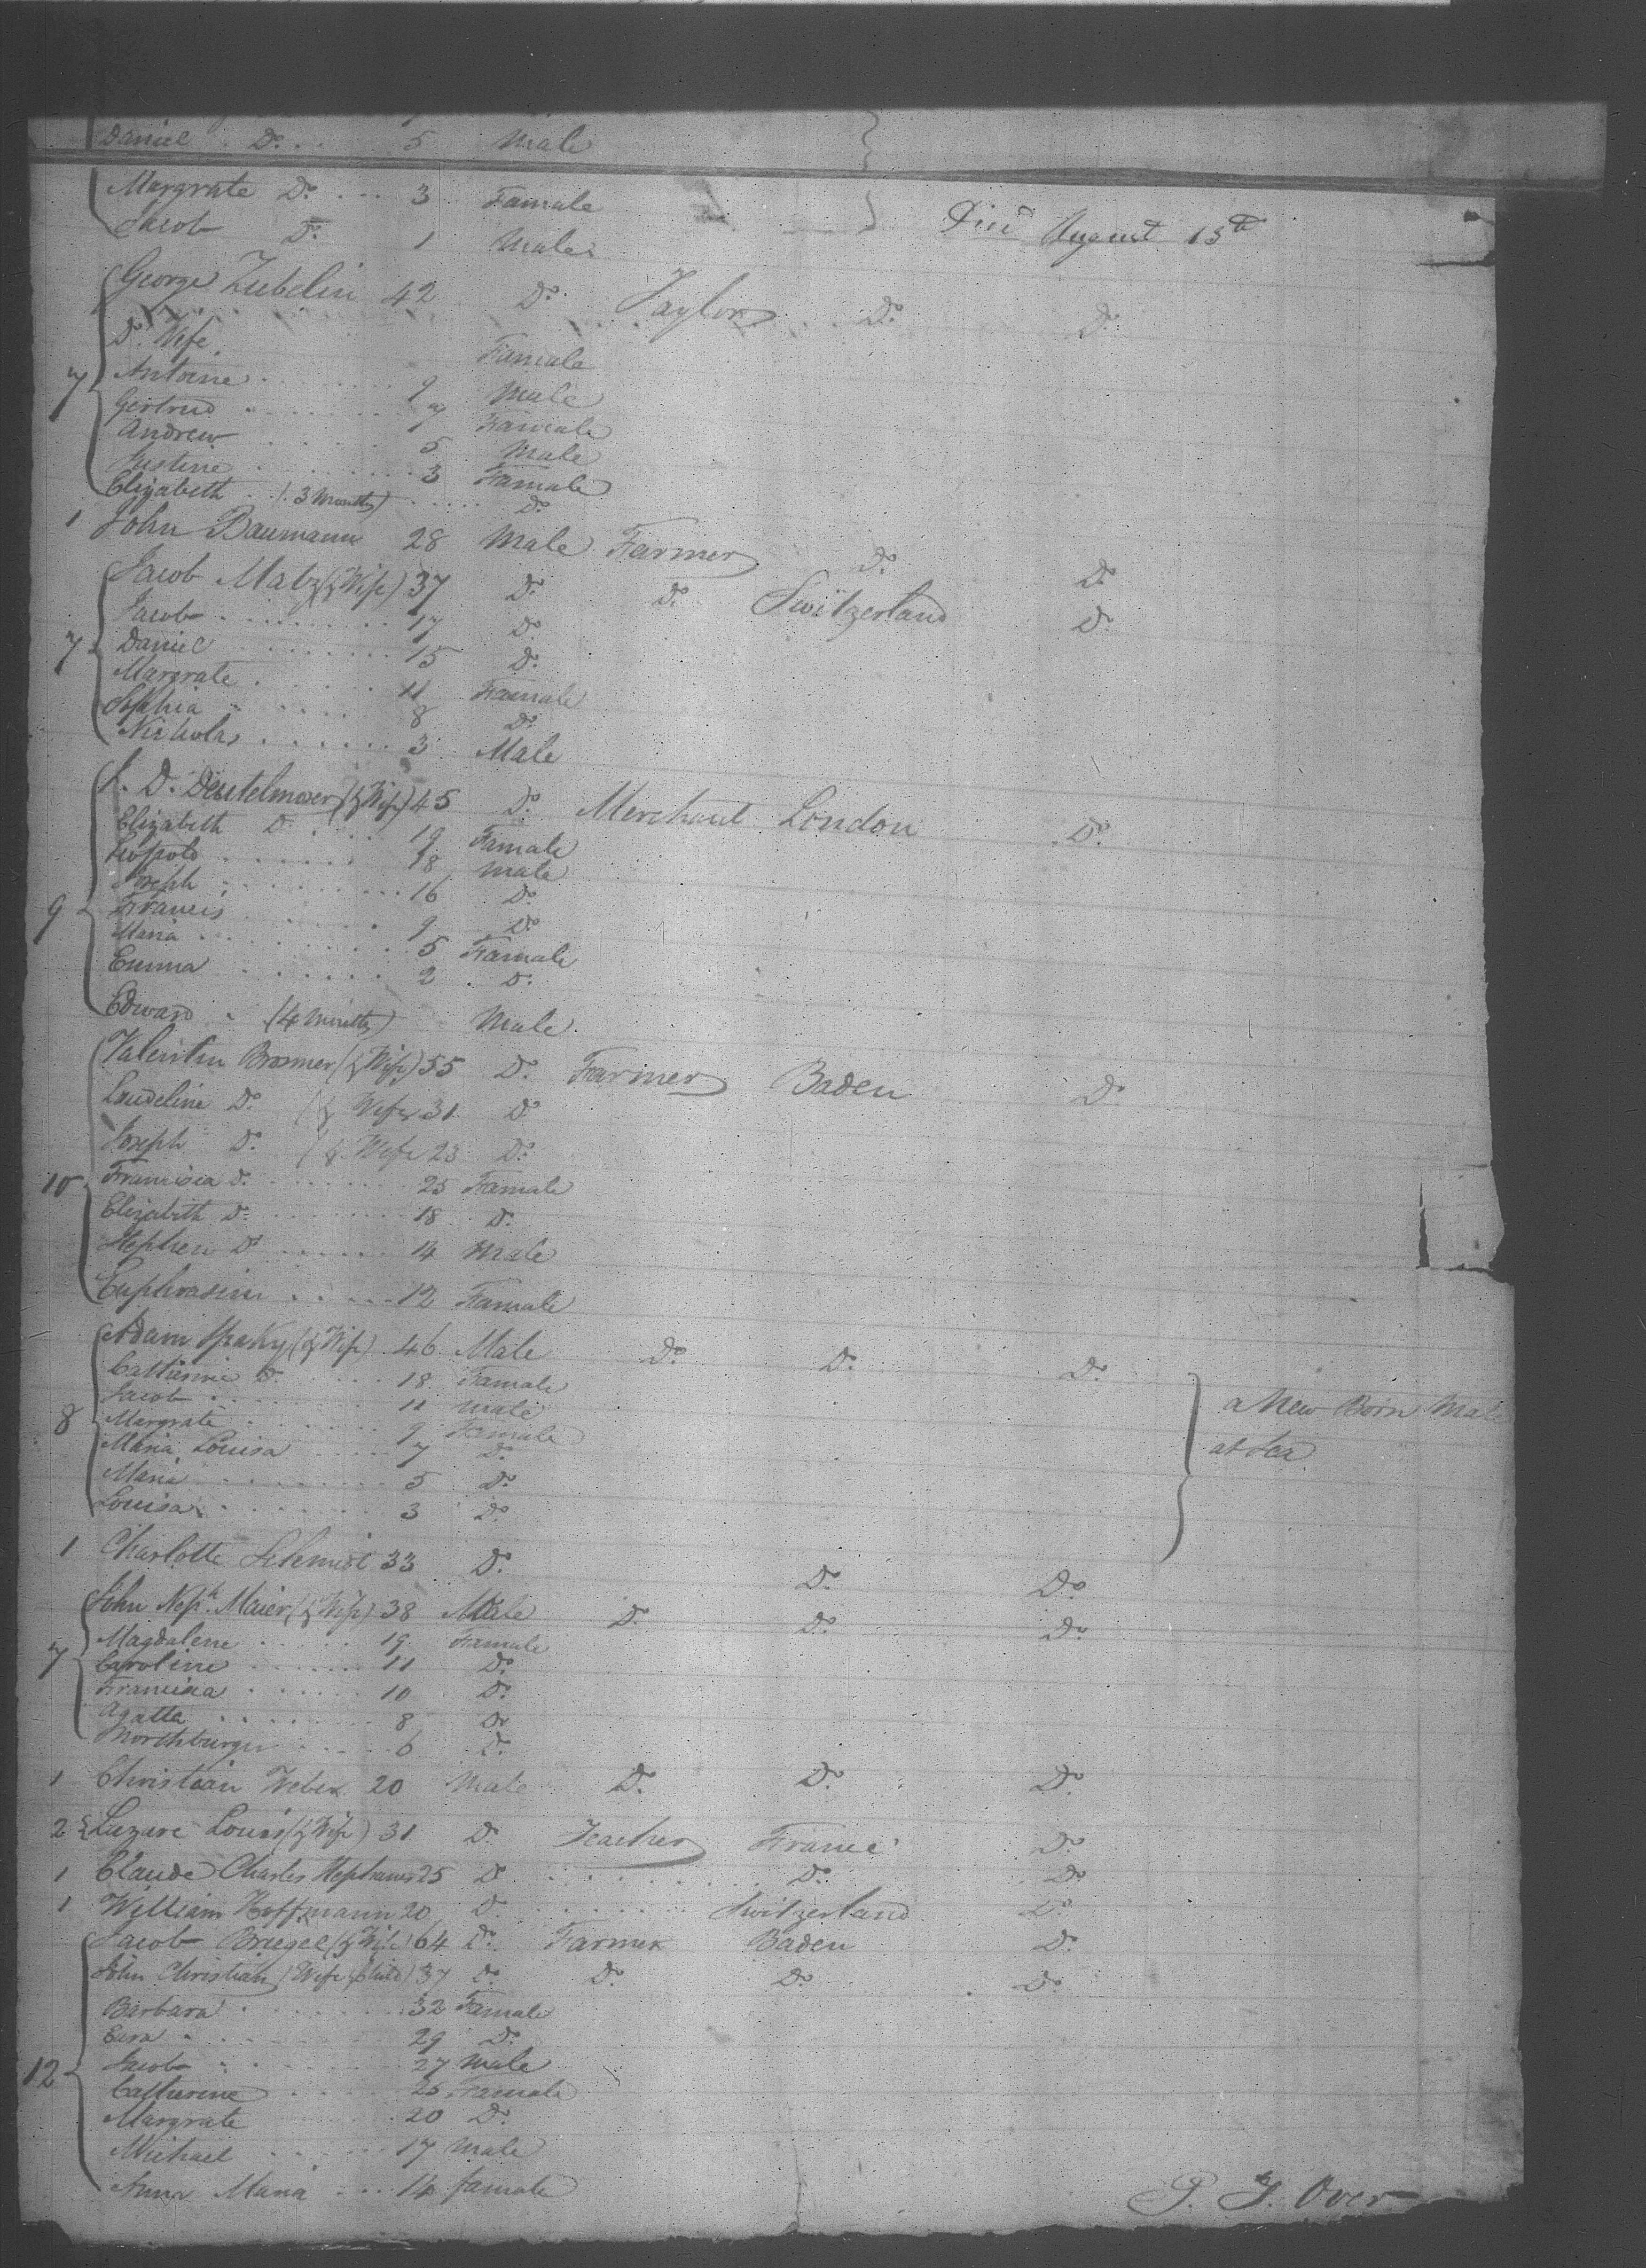 Daniel Do. .. 5 Male
Margrate Do. ... 3 Famale
Jacob Do. 1 Male Died August 13th
George Zubelin 42 Do. Taylor Do. Do.
Do. Wife Famale
7 Antoine 9 Male
Gertrud 7 Famale
Andrew 5 Male
Justine 3 Famale
Elizabeth (3 Months) Do.
1 John Baumann 28 Male Farmer Do. Do.
Jacob Matz (& Wife) 37 Do. Do. Switzerland Do.
Jacob 17 Do.
7 Daniel 15 Do.
Margrate 11 Famale
Sophia 8 Do.
Nicholas 3 Male
J. D. Deutelmoser (& Wife) 45 Do. Merchant London Do.
Elizabeth D. 19 Famale
Leopold 18 Male
Joseph 16 Do.
9 Francis 9 Do.
Maria 5 Famale
Emma 2 Do.
Edward (4 Months) Male
Valentin Brosmer (& Wife) 55 Do. Farmer Baden Do.
Landeline Do. (& Wife 31 Do
Joseph Do. (& Wife 23 Do.
10 Francisca Do. 25 Famale
Elizabeth Do. 18 Do.
Stephen Do 14 Male
Euphrasine 12 Famale
Adam (& Wife) 46 Male Do. Do. Do.
Catherine D. 18 Famale
Jacob 11 Male a New Born Male
8 Margrate 9 Famale
Maria Louisa 7 Do. at Sea
Maria 5 Do.
Louisa 3 Do.
1 Charlotte Schmidt 33 Do. Do. Do.
John Neph. Maier (& Wife) 38 Male Do. Do. Do.
Magdalene 19 Famale
7 Caroline 11 Do.
Francisca 10 Do.
Agatta 8 Do
6 Do.
1 Christian Weber 20 Male Do. Do. Do.
2 Lazare Louis (& Wife) 31 Do. Teacher France Do.
1 Claude Charles 25 Do. Do. Do
1 William Hoffmann 20 Do. Switzerland Do.
Jacob Briegel (& Wife) 64 Do. Farmer Baden Do.
John Christian (Wife & Child) 37 Do. Do. Do. Do.
Barbara 32 Famale
Eva 29 Do.
12 Jacob 27 Male
Catherine 25 Famale
Margrate 20 Do.
Michael 17 Male
Anna Maria 14 famale
P. T. Over